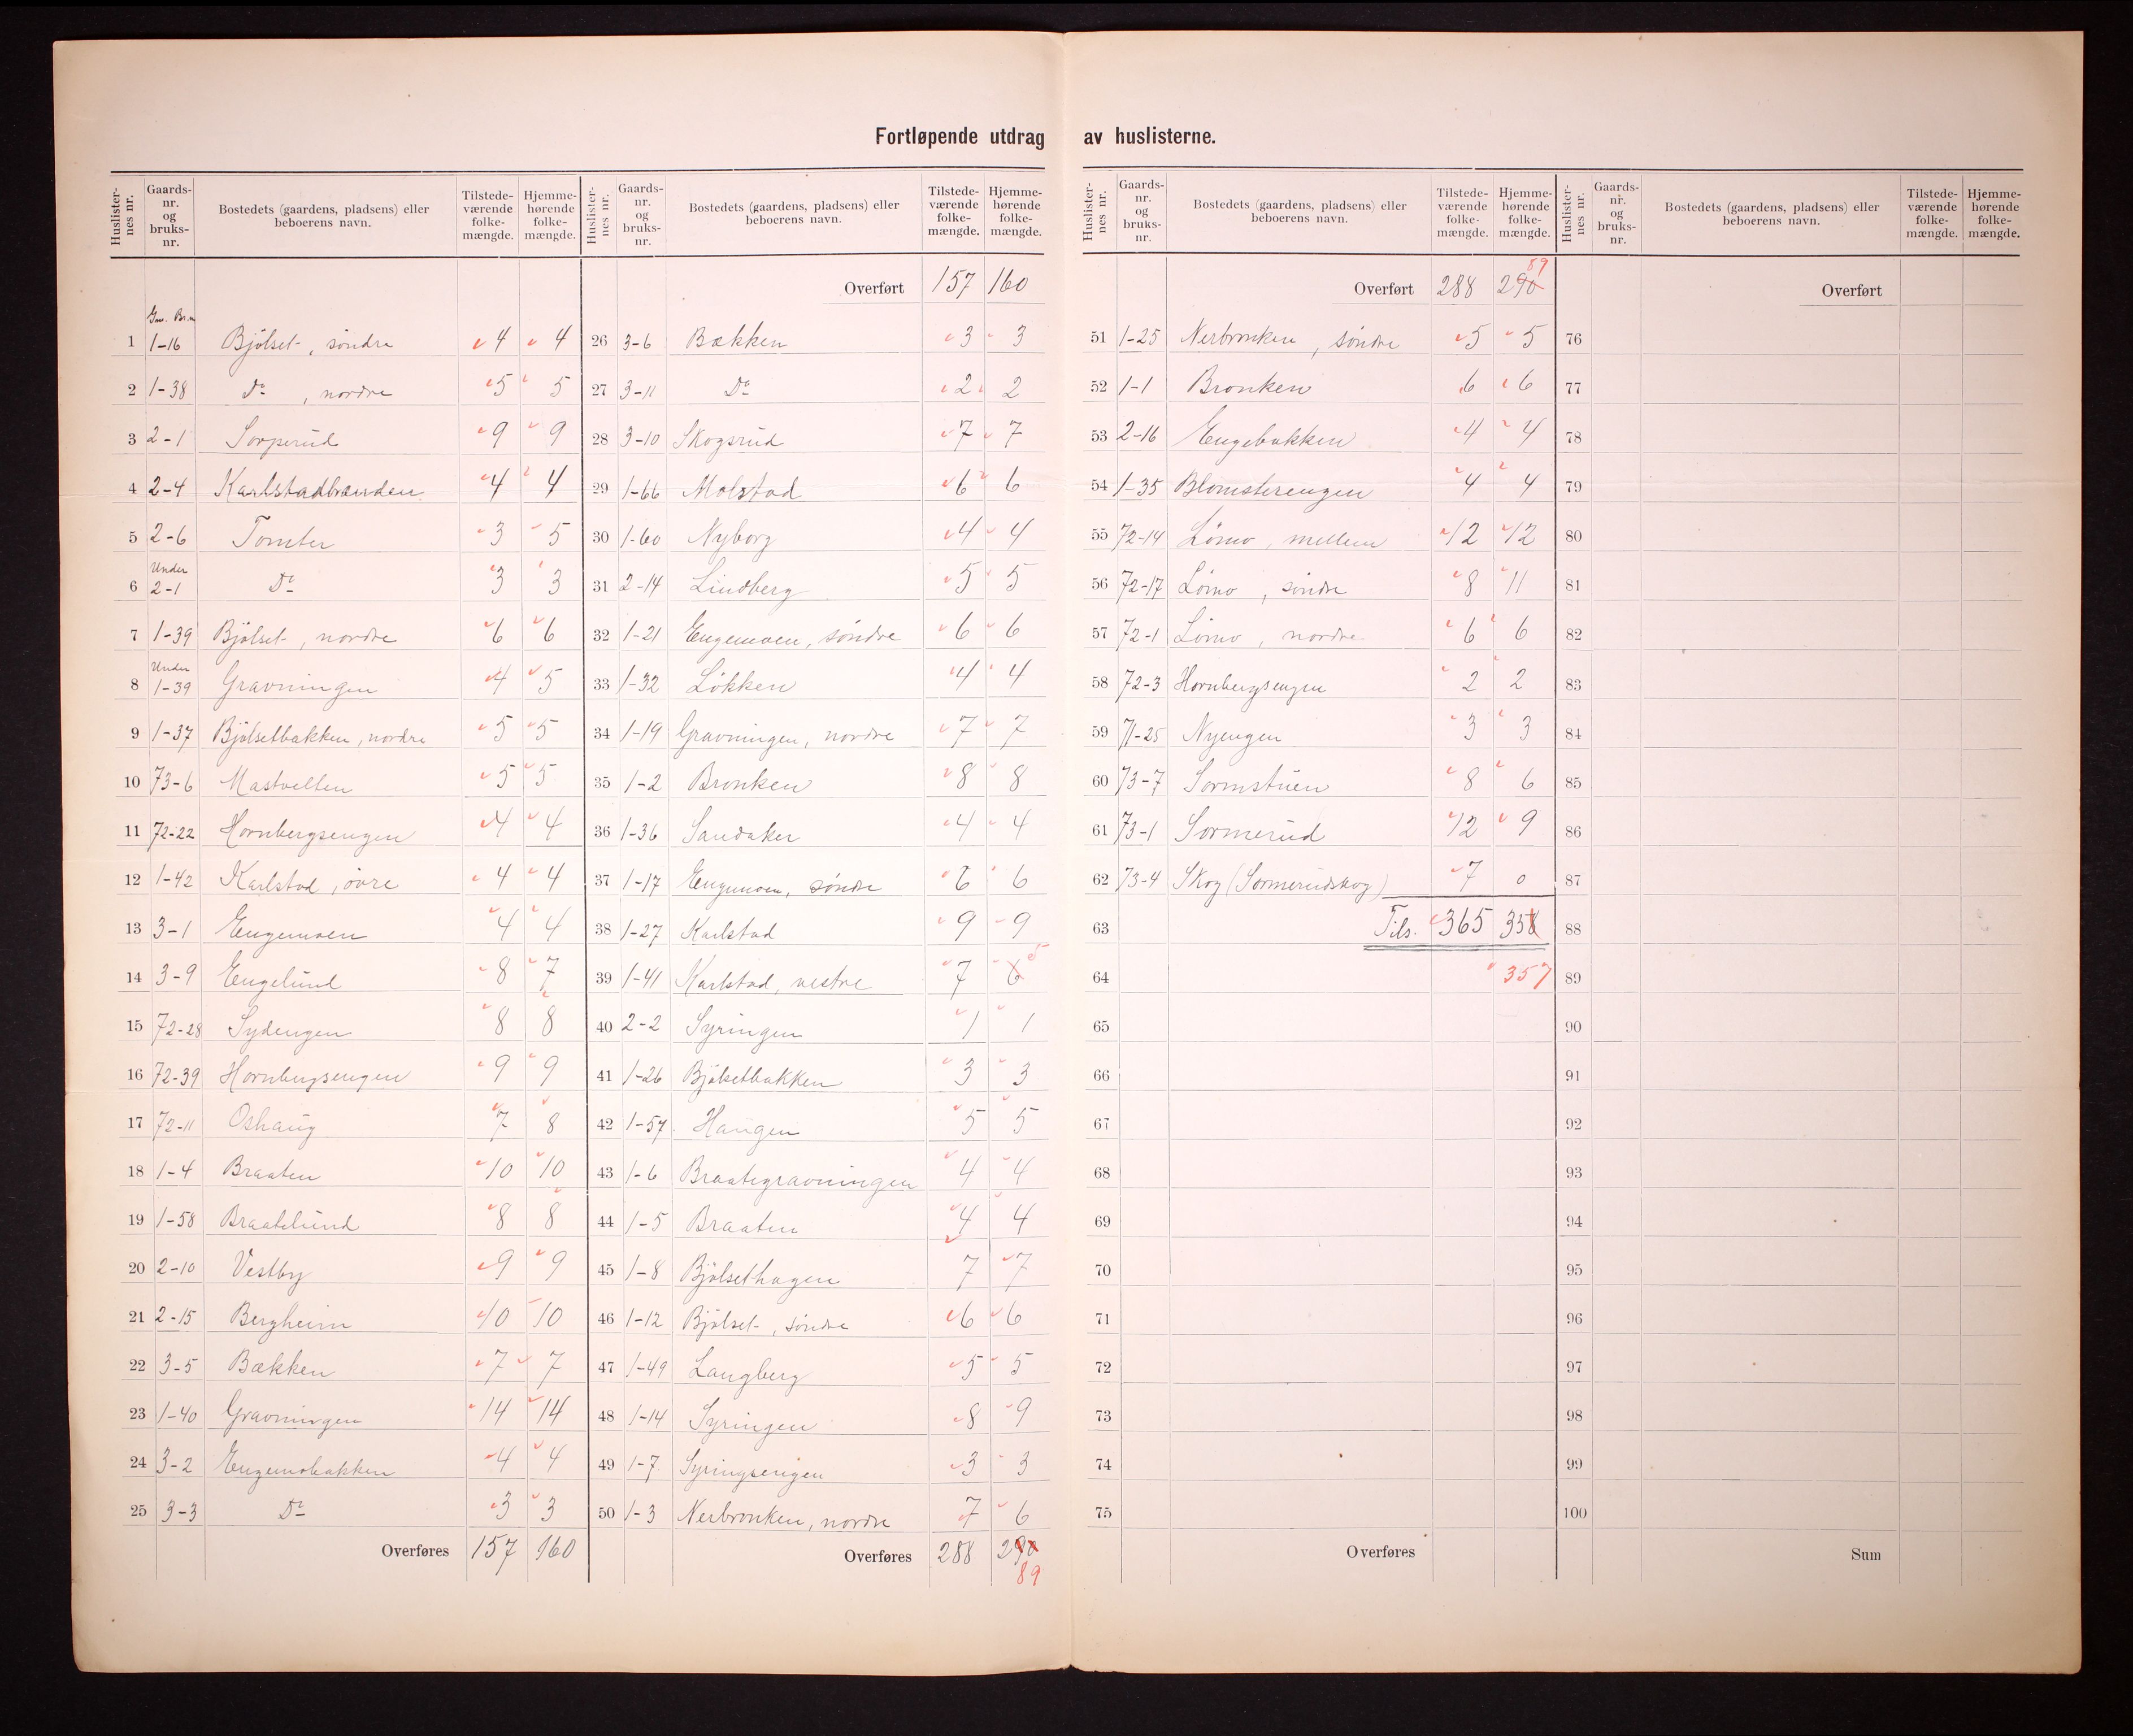 Fortløpende utdrag av huslisterne.
Huslister-nes nr. Gaards-nr. og bruks-nr. Bostedets (gaardens, pladsens) eller beboerens navn. Tilstede-værende folke-mængde. Hjemme-hørende folke-mængde.
Gn. Br.n
1 1-16 Bjölset, söndre 4 4
2 1-38 Do, nordre 5 5
3 2-1 Sorperud 9 9
4 2-4 Karlstadbrænden 4 4
5 2-6 Tomter 3 5
6 Under 2-1 Do 3 3
7 1-39 Bjölset, nordre 6 6
8 Under 1-39 Gravningen 4 5
9 1-37 Bjölsetbakken, nordre 5 5
10 73-6 Mastvellen 5 5
11 72-22 Hornbergsengen 4 4
12 1-42 Karlstad, övre 4 4
13 3-1 Engemoen 4 4
14 3-9 Engelund 8 7
15 72-28 Sydengen 8 8
16 72-39 Hornbergsengen 9 9
17 72-11 Oshaug 7 8
18 1-4 Braaten 10 10
19 1-58 Braatelund 8 8
20 2-10 Vestby 9 9
21 2-15 Bergheim 10 10
22 3-5 Bækken 7 7
23 1-40 Gravningen 14 14
24 3-2 Engemobakken 4 4
25 3-3 Do 3 3
Overføres 157 160
Huslister-nes nr. Gaards-nr. og bruks-nr. Bostedets (gaardens, pladsens) eller beboerens navn. Tilstede-værende folke-mængde. Hjemme-hørende folke-mængde.
Overført 157 160
26 3-6 Bækken 3 3
27 3-11 Do 2 2
28 3-10 Skogsrud 7 7
29 1-66 Molstad 6 6
30 1-60 Nyborg 4 4
31 2-14 Lindberg 5 5
32 1-21 Engemoen, söndre 6 6
33 1-32 Lökken 4 4
34 1-19 Gravningen, nordre 7 7
35 1-2 Bronken 8 8
36 1-36 Sandaker 4 4
37 1-17 Engemoen, söndre 6 6
38 1-27 Karlstad 9 9
39 1-41 Karlstad, vestre 7 6 5
40 2-2 Syringen 1 1
41 1-26 Bjölsetbakken 3 3
42 1-57 Haugen 5 5
43 1-6 Braategravningen 4 4
44 1-5 Braaten 4 4
45 1-8 Bjölsethagen 7 7
46 1-12 Bjölset, söndre 6 6
47 1-49 Langberg 5 5
48 1-14 Syringen 8 9
49 1-7 Syringsengen 3 3
50 1-3 Nerbronken, nordre 7 6
Overføres 288 290
89
Huslister-nes nr. Gaards-nr. og bruks-nr. Bostedets (gaardens, pladsens) eller beboerens navn. Tilstede-værende folke-mængde. Hjemme-hørende folke-mængde.
89
Overført 288 290
51 1-25 Nerbronken, söndre 5 5
52 1-1 Bronken 6 6
53 2-16 Engebakken 4 4
54 1-35 Blomsterengen 4 4
55 72-14 Lömo, mellem 12 12
56 72-17 Lömo, söndre 8 11
57 72-1 Lömo, nordre 6 6
58 72-3 Hornbergsengen 2 2
59 71-25 Nyengen 3 3
60 73-7 Sormstuen 8 6
61 73-1 Sormerud 12 9
62 73-4 Skog (Sormerudskog) 7 0
63 Tils. 365 358
64 357
65
66
67
68
69
70
71
72
73
74
75
Overføres
Huslister-nes nr. Gaards-nr. og bruks-nr. Bostedets (gaardens, pladsens) eller beboerens navn. Tilstede-værende folke-mængde. Hjemme-hørende folke-mængde.
Overført
76
77
78
79
80
81
82
83
84
85
86
87
88
89
90
91
92
93
94
95
96
97
98
99
100
Sum